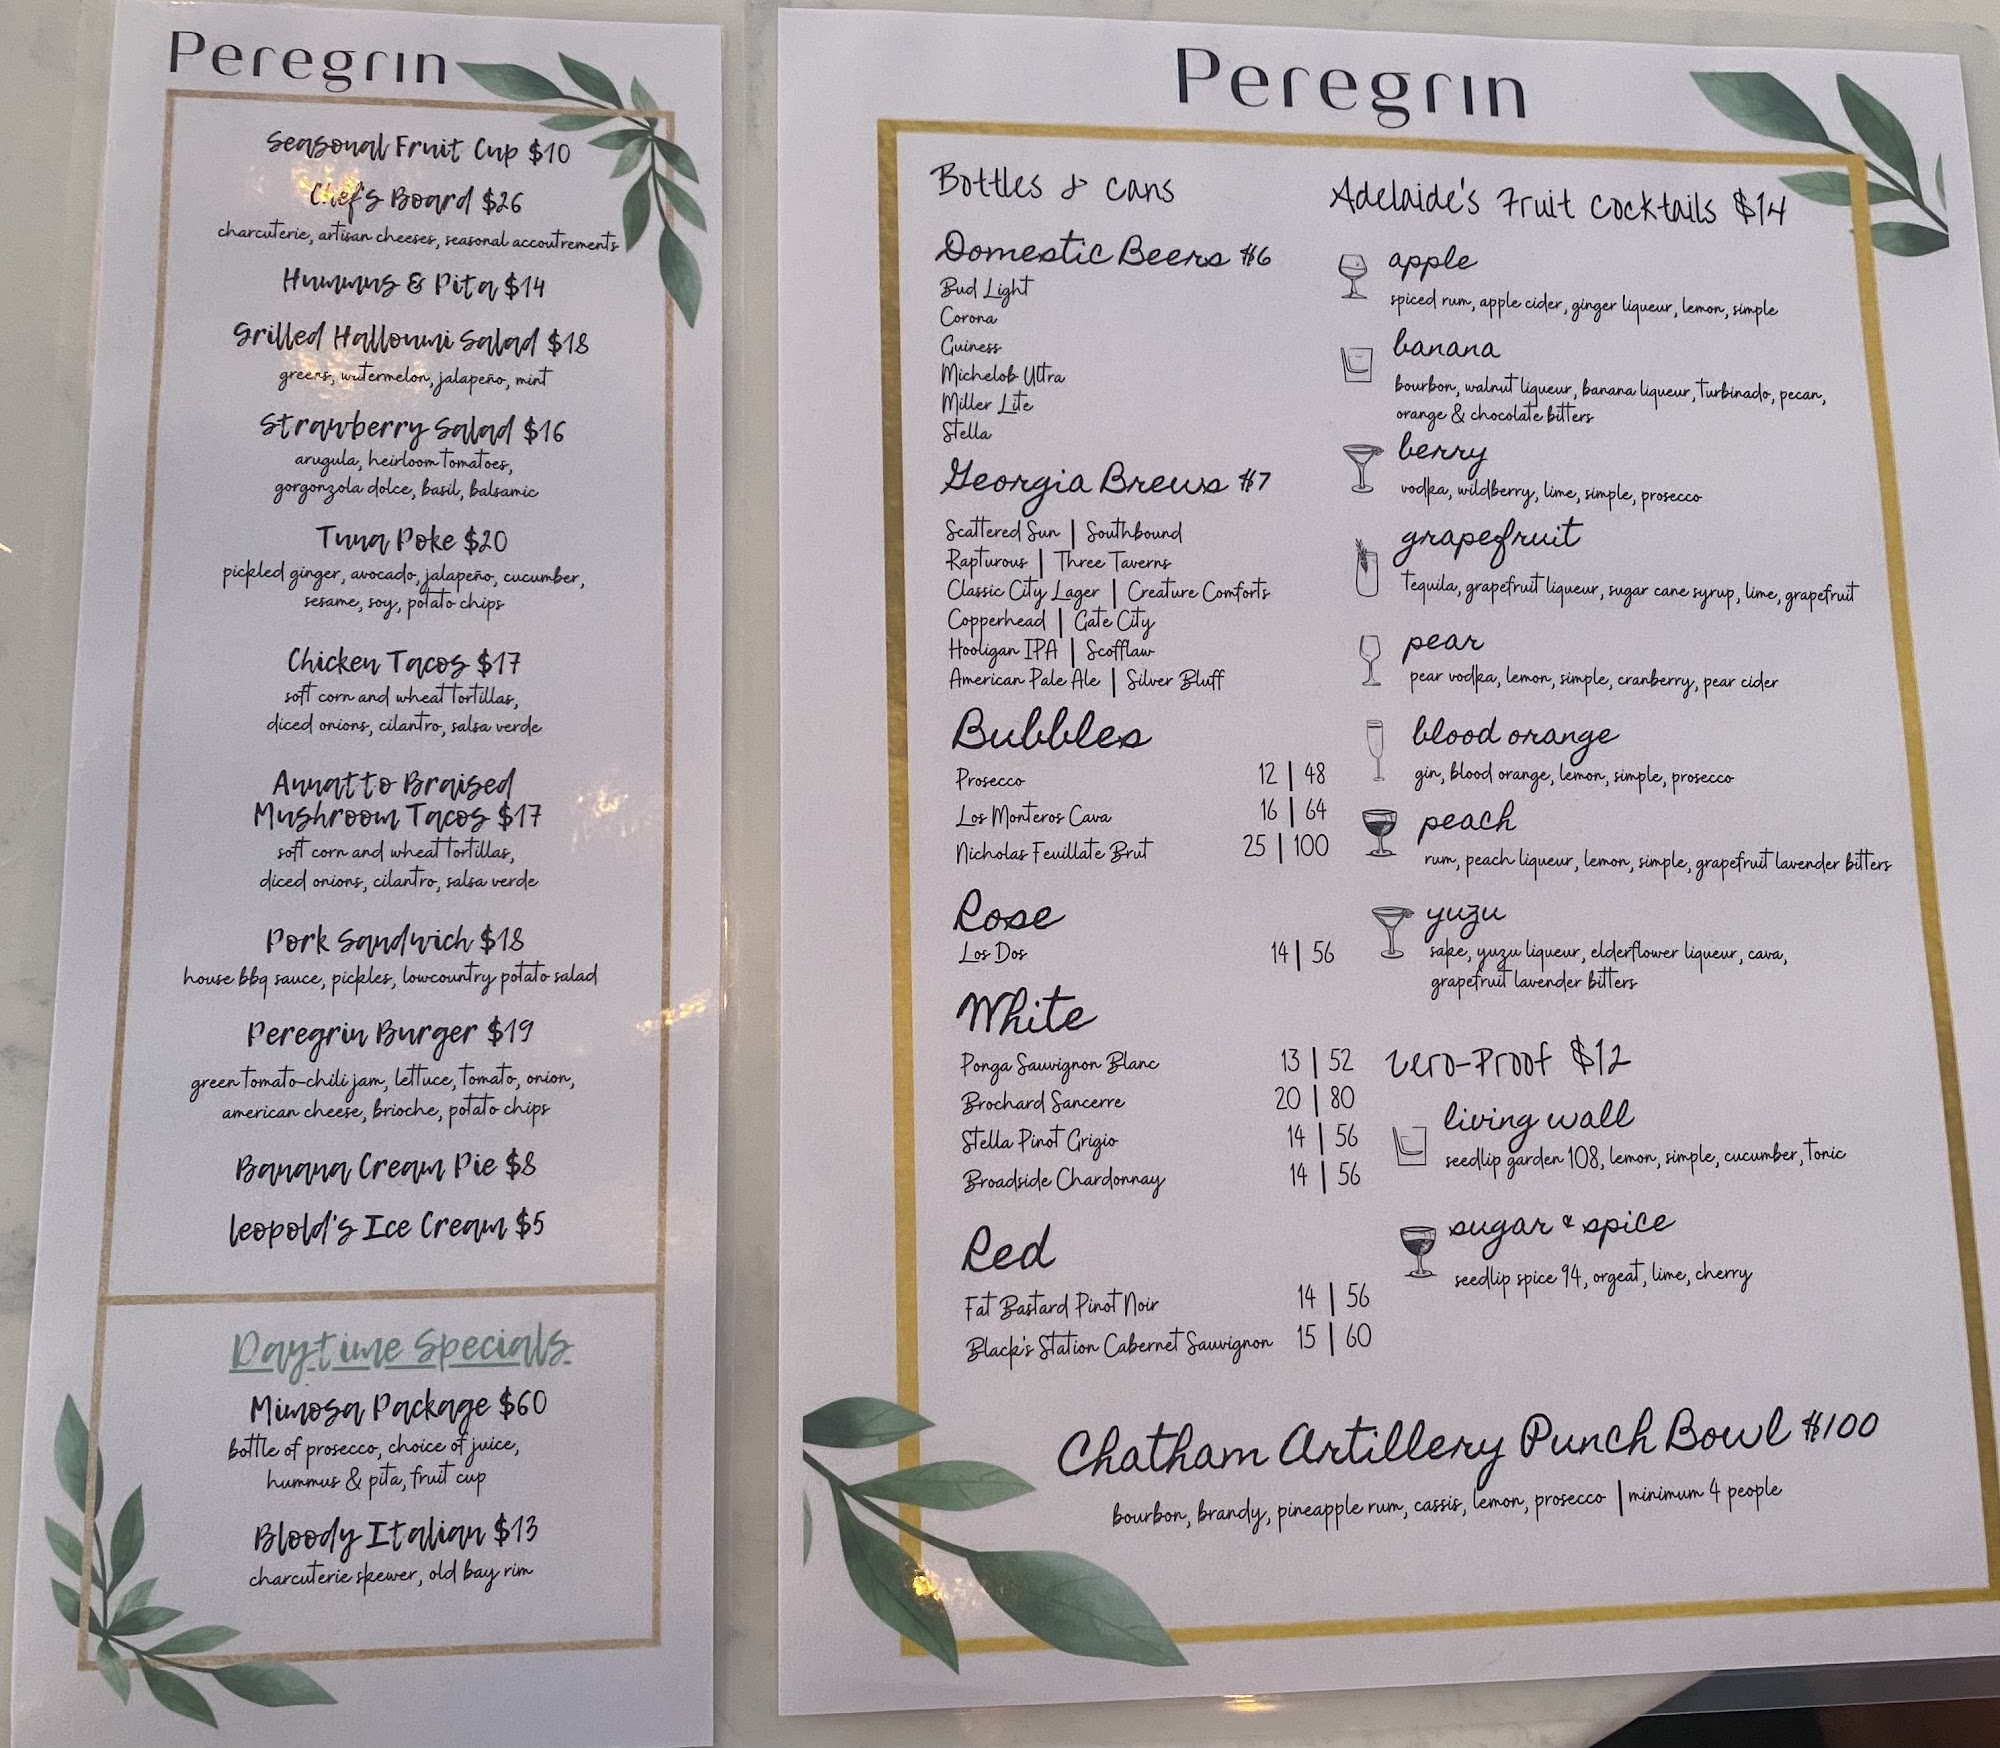 Peregrin
Seasonal Fruit Cup $10
Chef's Board $26
charcuterie, artisan cheeses, seasonal accoutrements
Hummus & Pita $14
Grilled Halloumi Salad $18
greens, watermelon, jalapeño, mint
Strawberry Salad $16
arugula, heirloom tomatoes,
gorgonzola dolce, basil, balsamic
Tuna Poke $20
pickled ginger, avocado, jalapeño, cucumber,
sesame, soy, potato chips
Chicken Tacos $17
soft corn and wheat tortillas,
diced onions, cilantro, salsa verde
Annatto Braised
Mushroom Tacos $17
soft corn and wheat tortillas,
diced onions, cilantro, salsa verde
Pork Sandwich $18
house bbq sauce, pickles, lowcountry potato salad
Peregrin Burger $19
green tomato-chili jam, lettuce, tomato, onion,
american cheese, brioche, potato chips
Banana Cream Pie $8
leopold's Ice Cream $5
Daytime Specials
Mimosa Package $60
bottle of prosecco, choice of juice,
hummus & pita, fruit cup
Bloody Italian $13
charcuterie skewer, old bay rim
Peregrin
Bottles & cans
Domestic Beers $6
Bud Light
Corona
Guiness
Michelob Ultra
Miller Lite
Stella
Georgia Brews $7
Scattered Sun | Southbound
Rapturous | Three Taverns
Classic City Lager | Creature Comforts
Copperhead | Gate City
Hooligan IPA | Scofflaw
American Pale Ale | Silver Bluff
Bubbles
Prosecco 12 | 48
Los Monteros Cava 16 | 64
Nicholas Feuillate Brut 25 | 100
Rose
Los Dos 14 | 56
White
Ponga Sauvignon Blanc 13 | 52
Brochard Sancerre 20 | 80
Stella Pinot Grigio 14 | 56
Broadside Chardonnay 14 | 56
Red
Fat Bastard Pinot Noir 14 | 56
Black's Station Cabernet Sauvignon 15 | 60
Adelaide's Fruit Cocktails $14
apple
spiced rum, apple cider, ginger liqueur, lemon, simple
banana
bourbon, walnut liqueur, banana liqueur, turbinado, pecan,
orange & chocolate bitters
berry
vodka, wildberry, lime, simple, prosecco
grapefruit
tequila, grapefruit liqueur, sugar cane syrup, lime, grapefruit
pear
pear vodka, lemon, simple, cranberry, pear cider
blood orange
gin, blood orange, lemon, simple, prosecco
peach
rum, peach liqueur, lemon, simple, grapefruit lavender bitters
yuzu
sake, yuzu liqueur, elderflower liqueur, cava,
grapefruit lavender bitters
Zero-Proof $12
living wall
seedlip garden 108, lemon, simple, cucumber, tonic
sugar & spice
seedlip spice 94, orgeat, lime, cherry
Chatham Artillery Punch Bowl $100
bourbon, brandy, pineapple rum, cassis, lemon, prosecco | minimum 4 people